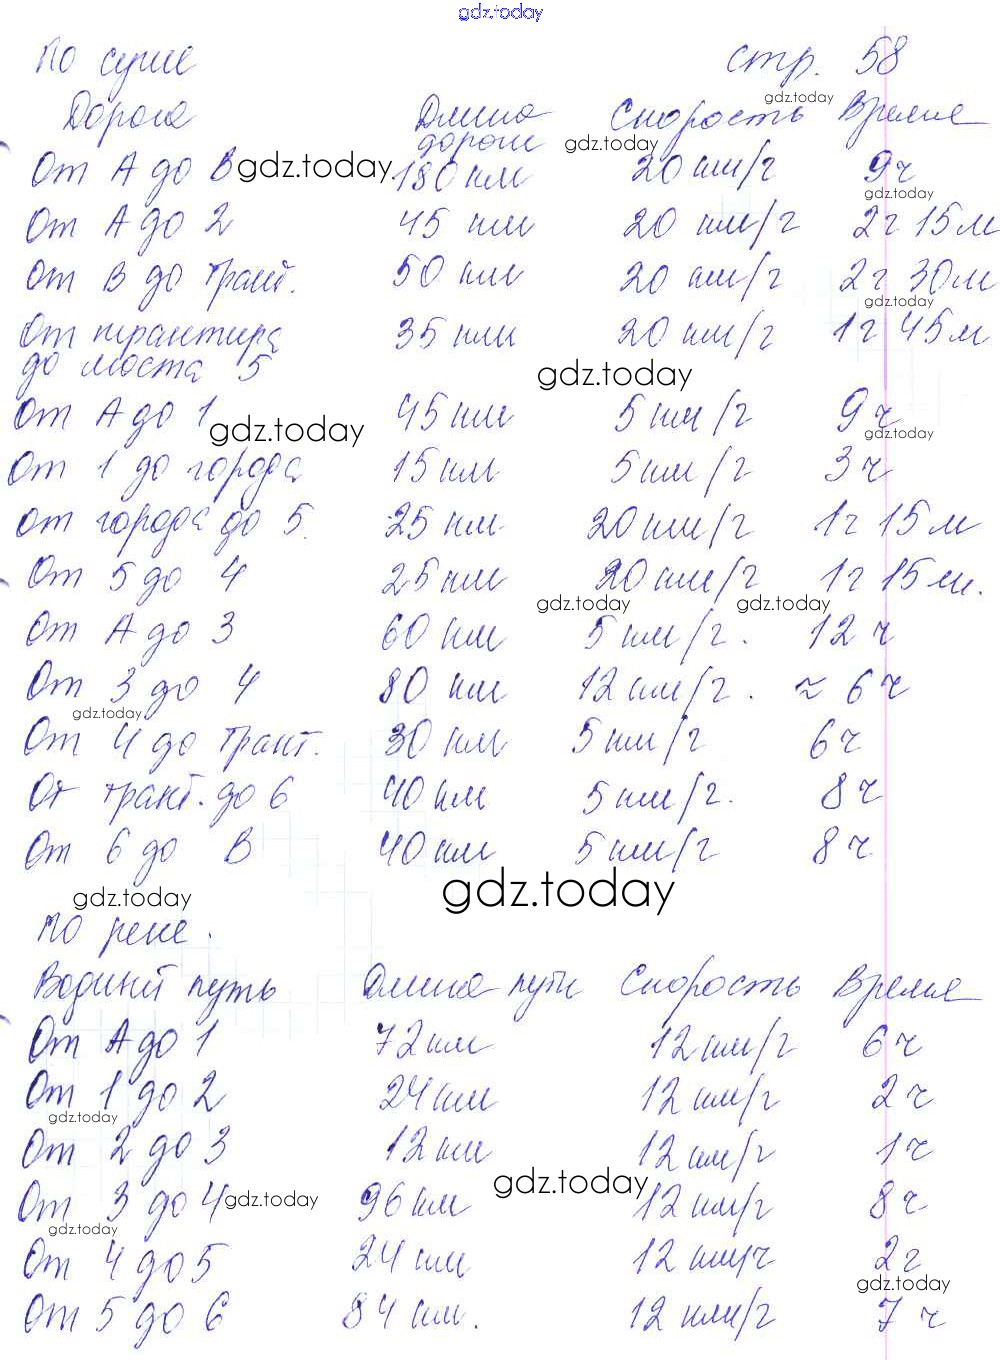 gdz.today
По суше стр. 58
Дорога Длина дороги Скорость Время
От А до В 180 км 20 км/ч 9ч
От А до 2 45 км 20 км/ч 2ч 15м
От В до тракт. 50 км 20 км/ч 2ч 30м
От трактира до моста 5 35 км 20 км/ч 1ч 45м
От А до 1 45 км 5 км/ч 9ч
От 1 до города 15 км 5 км/ч 3ч
от города до 5. 25 км 20 км/ч 1ч 15м
От 5 до 4 25 км 20 км/ч 1ч 15м.
От А до 3 60 км 5 км/ч. 12 ч
От 3 до 4 80 км 12 км/ч. ≈ 6ч
От 4 до тракт. 30 км 5 км/ч 6ч
От тракт. до 6 40 км 5 км/ч. 8ч
От 6 до В 40 км 5 км/ч 8ч
gdz.today
По реке.
Водный путь Длина пути Скорость Время
От А до 1 72 км 12 км/ч 6ч
От 1 до 2 24 км 12 км/ч 2ч
От 2 до 3 12 км 12 км/ч 1ч
От 3 до 4 96 км 12 км/ч 8ч
От 4 до 5 24 км 12 км/ч 2ч
От 5 до 6 84 км. 12 км/ч 7 ч